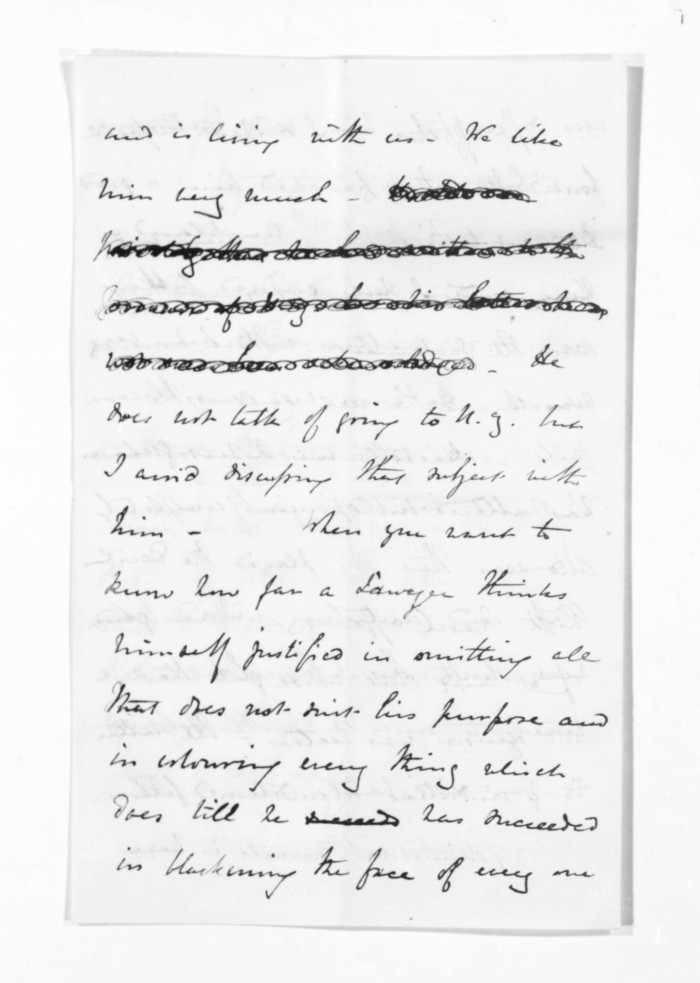 and is living with us - We like
him very much -
- He
does not talk of going to N.Z. but
I avoid discussing that subject with
him - When you want to
know how far a Lawyer thinks
himself justified in omitting all
that does not suit his purpose and
in colouring every thing which
does till he succeeds has succeeded
in blackening the face of every one